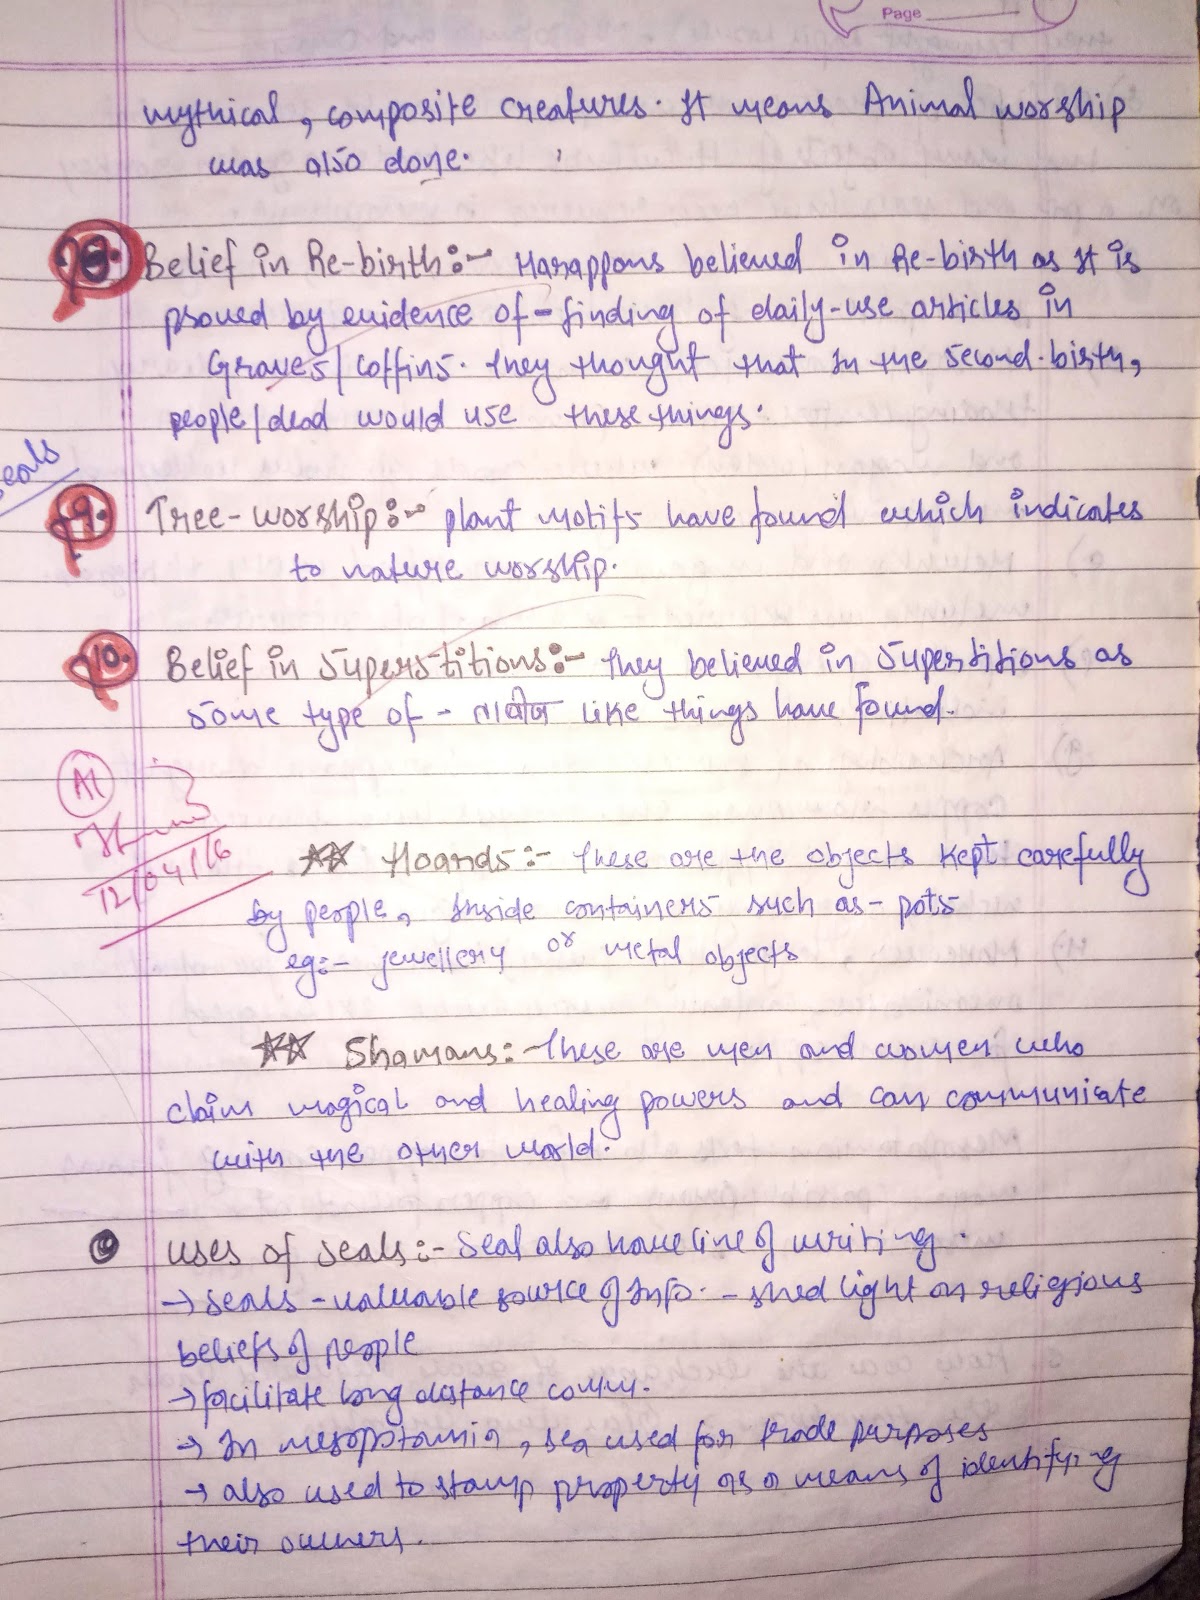 Page
mythical, composite creatures. It means Animal worship
was also done.
8. Belief in Re-birth:- Harappans believed in Re-birth as It is
proved by evidence of - finding of daily-use articles in
Graves/Coffins. They thought that In the second-birth,
people/dead would use these things.
seals
9. Tree-worship:- plant motifs have found which indicates
to nature worship.
10. Belief in Superstitions:- They believed in Superstitions as
some type of - ताबीज like things have found.
12/04/16
** Hoards:- These are the objects kept carefully
by people, Inside containers such as - pots
eg:- jewellery or metal objects
** Shamans:- These are men and women who
claim magical and healing powers and can communicate
with the other world.
Uses of Seals:- Seal also have line of writing.
→ Seals - valuable source of Info. - shed light on religious
beliefs of people
→ facilitate long distance comm.
→ In mesopotamia, sea used for trade purposes
→ also used to stamp property as a means of identifying
their owners.